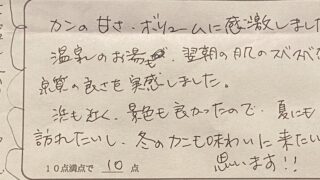 カニの甘さ・ボリュームに感激しました
温泉のお湯も、翌朝の肌のスベスベ
泉質の良さを実感しました。
浜も近く、景色も良かったので、夏にも
訪れたいし、冬のカニも味わいに来たい
思います!!
10点満点で 10 点